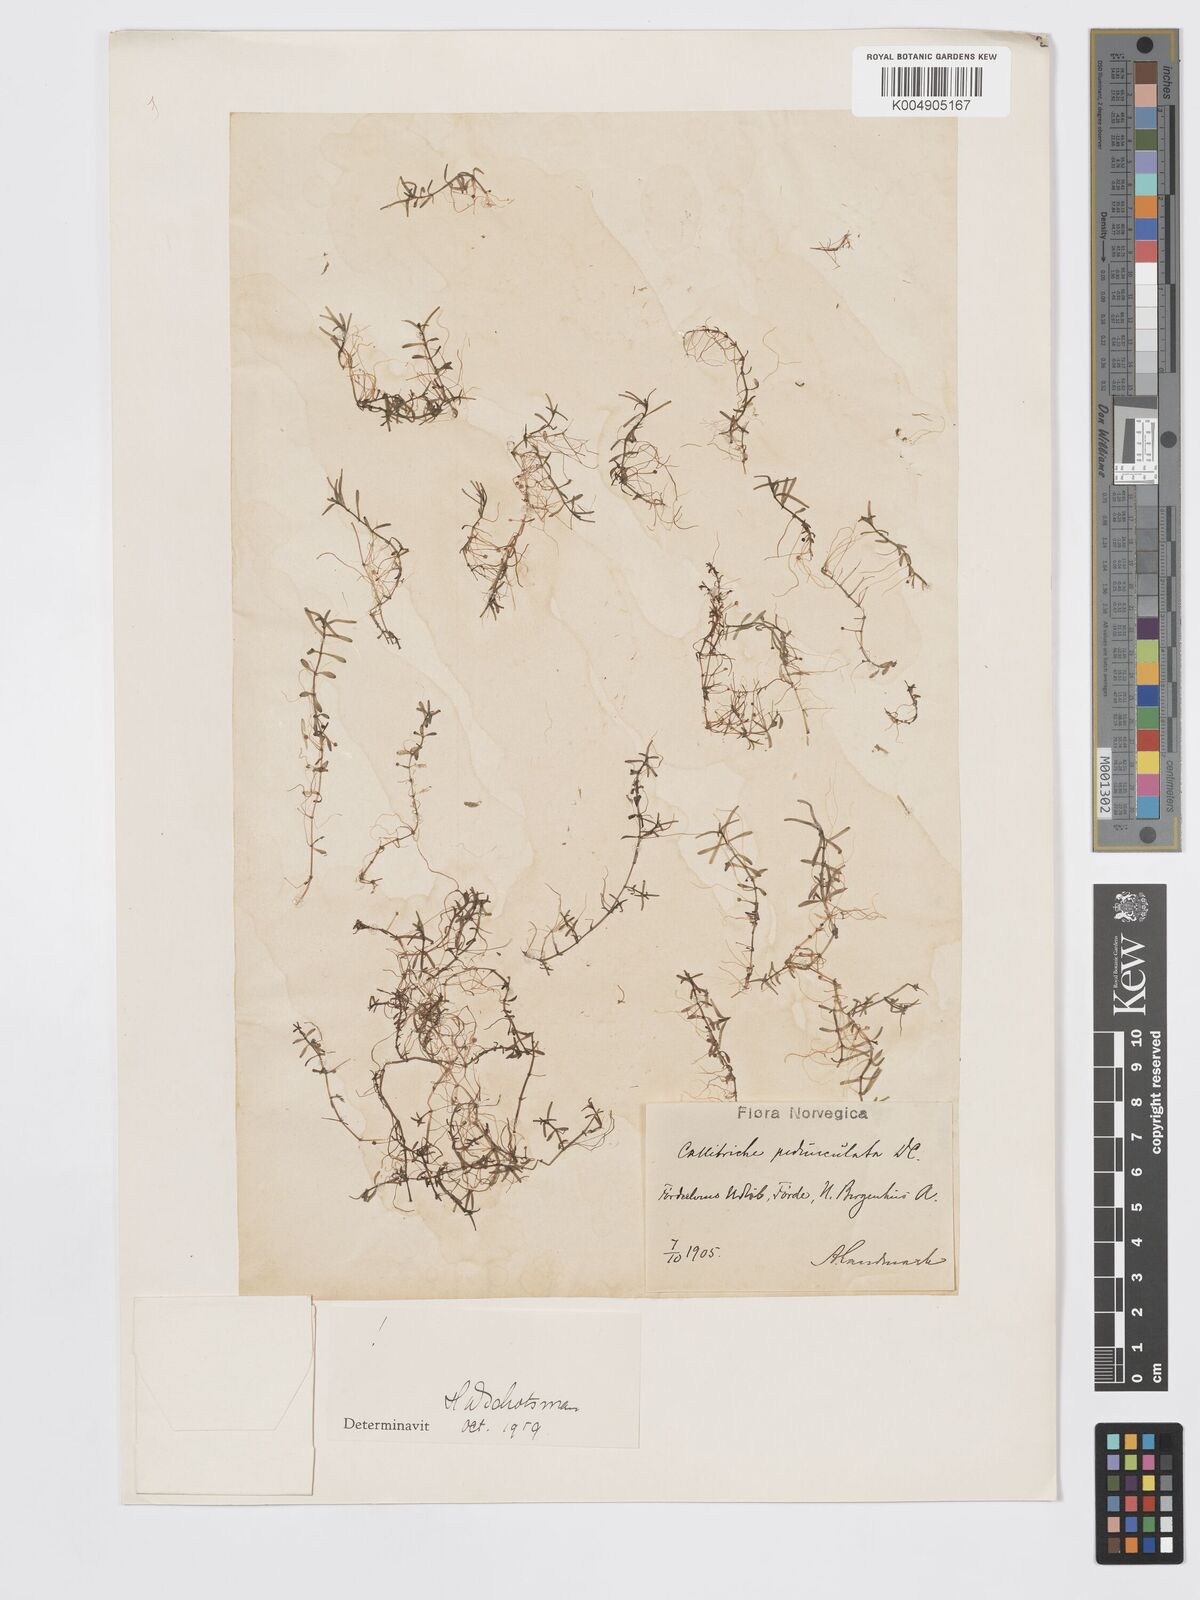 ROYAL BOTANIC GARDENS KEW
K004905167
Flora Norvegica
Callitriche pedunculata DC.
Förde, N. Bergenhus A.
7/10 1905.
A Landmark
!
H D Schotsman
Determinavit Oct. 1959.
inches
centimetres
Density
Don Williams
M001302
Royal Botanic Gardens
Kew
0 1 2 3 4 5 6 7 8 9 10
cm
copyright reserved